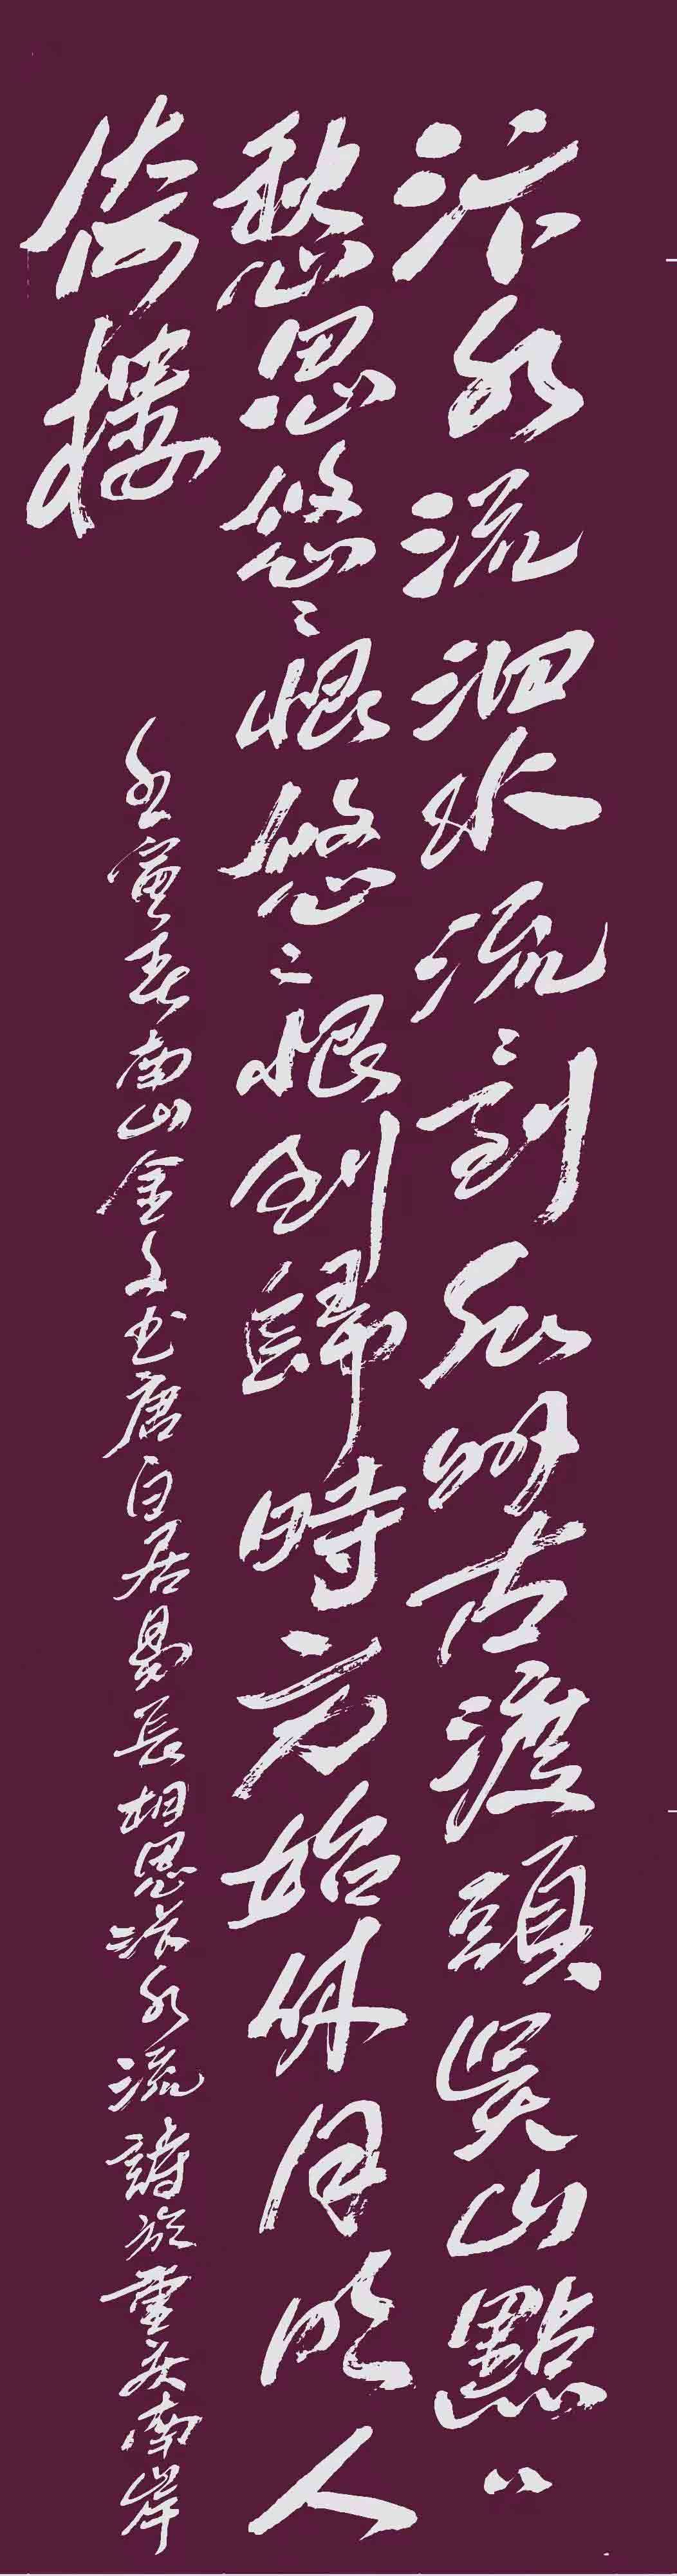 汴水流泗水流〻到瓜州古渡頭吳山點〻
愁思悠〻恨悠〻恨到歸時方始休月明人
倚樓
壬寅春南山金文书唐白居易長相思汴水流詩於重庆南岸